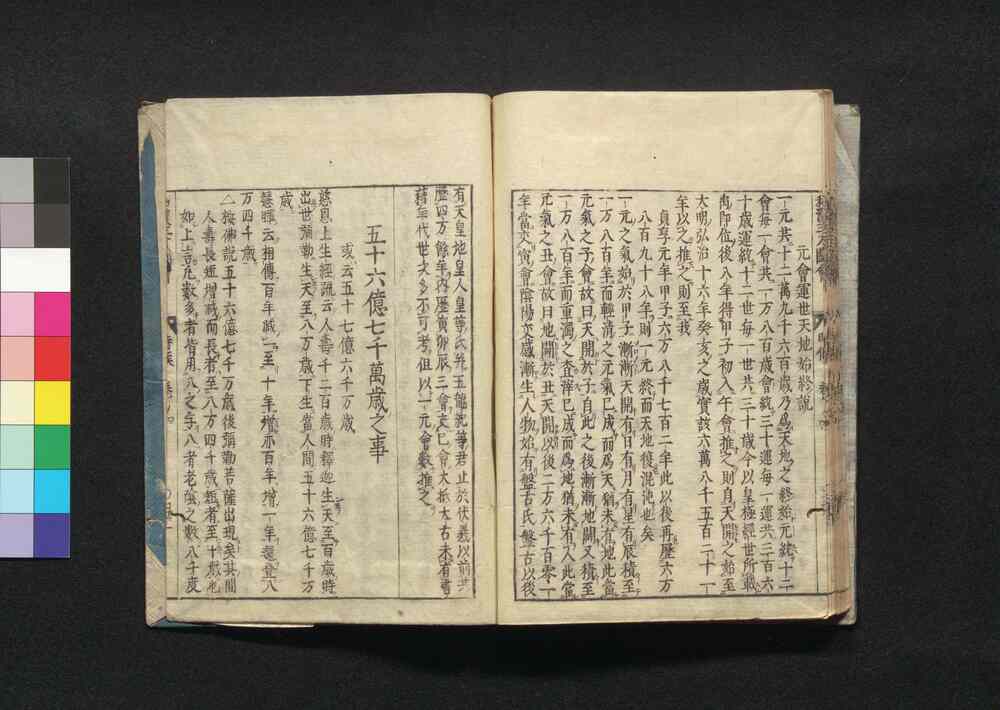 元會運世天地始終説
一元共十二萬九千六百歳乃爲天地之終始元統十二
會毎一會共一万八百歳會統三十運毎一運共三百六
十歳運統十二世毎一世共三十歳今以皇極經世所載
禹即位後八年得甲子初入午會推之則自天開之始至
大明弘治十六年癸亥之歳實該六萬八千五百二十一
年以之推之則至我
貞享元年甲子六万八千七百二年此以後再歷六万
八百九十八年則一元終而天地復混沌也矣
一元之氣始於甲子漸漸天開有日有月有星有辰積至
一万八百年而輕清之元氣已成而爲天猶未有地此當
元氣之子會故曰天開於子自此之後漸漸地關又積至
一万八百年而重濁之査滓已成而爲地猶未有人此當
元氣之丑會故曰地關於丑天開以後二万六千百零一
年當交寅會陰陽交感漸生人物始有盤古氏盤古以後
有天皇地皇人皇等氏并五龍紀等君止於伏羲以前共
歷四万餘年内歷寅卯辰三會交巳會大抵太古未有書
籍年代世次多不可考但以一元會數推之
五十六億七千萬歳之事
或云五十七億六千万歳
慈恩上生經疏云人壽千二百歳時釋迦生天至百歳時
出世彌勒生天至八万歳下生當人間五十六億七千万
歳
慧暉云相傳百年減一至十年増亦百年増一年還登八
万四千歳
△按佛説五十六億七千万歳後彌勒菩薩出現矣其間
人壽長短増減而長者至八万四千歳短者至十歳也
如上古凡數多者皆用八之字八者老陰之數八千度